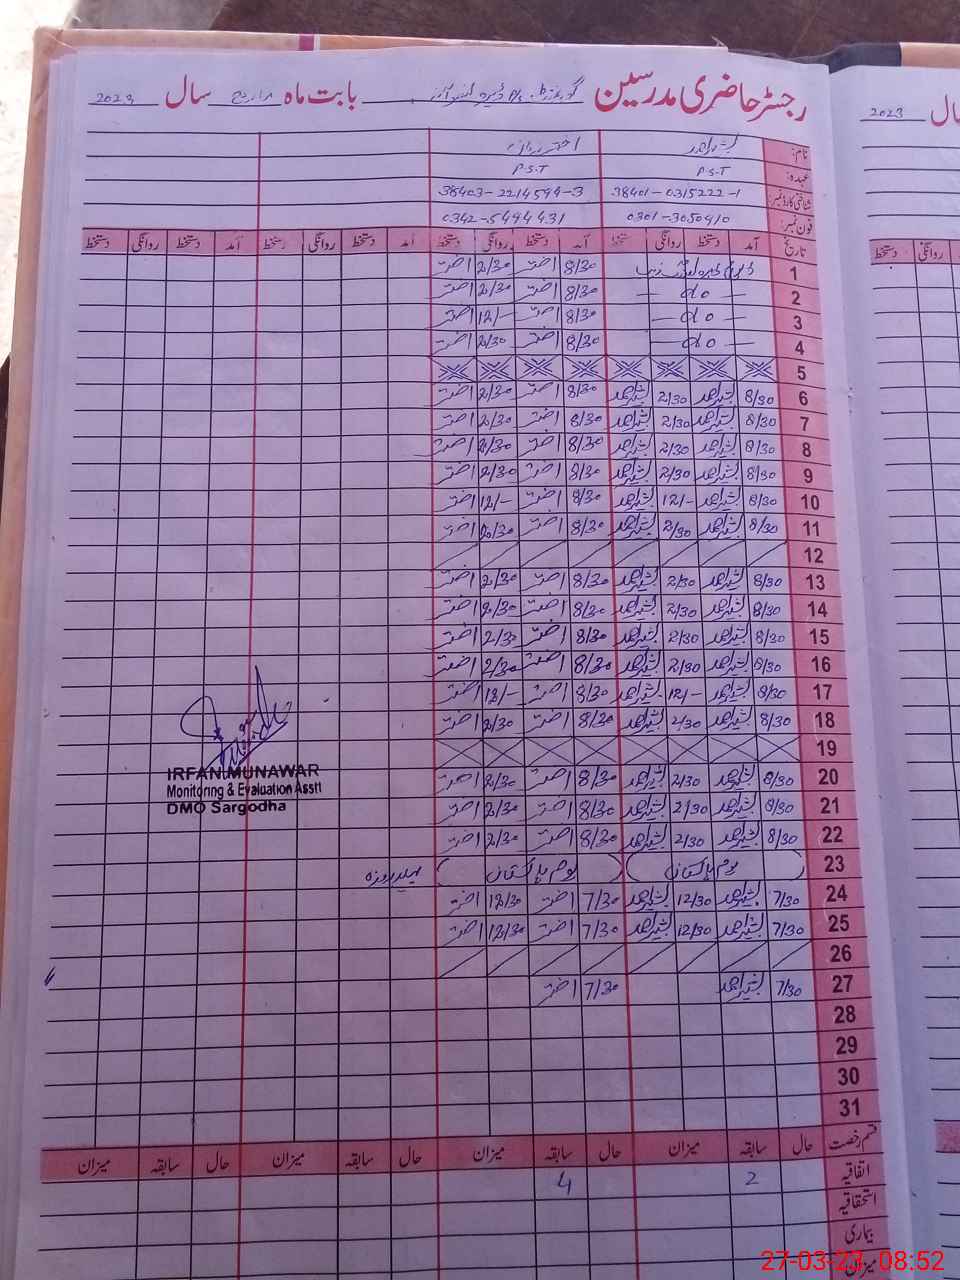 رجسٹر حاضری مدرسین بابت ماہ مارچ سال 2023
2023 سال
نام: بشیر احمد
عہدہ: P.S.T P.S.T
شناختی کارڈ نمبر: 38401-0315222-1 38403-2214594-3
فون نمبر: 0301-3050910 0342-5494431
تاریخ آمد دستخط روانگی دستخط آمد دستخط روانگی دستخط آمد دستخط روانگی دستخط آمد دستخط روانگی دستخط
روانگی دستخط
1 8/30 اختر 2/30 اختر
2 — do — 8/30 اختر 2/30 اختر
3 — do — 8/30 اختر 12/- اختر
4 — do — 8/30 اختر 2/30 اختر
5
6 8/30 بشیر احمد 2/30 بشیر احمد 8/30 اختر 2/30 اختر
7 8/30 بشیر احمد 2/30 بشیر احمد 8/30 اختر 2/30 اختر
8 8/30 بشیر احمد 2/30 بشیر احمد 8/30 اختر 2/30 اختر
9 8/30 بشیر احمد 2/30 بشیر احمد 8/30 اختر 2/30 اختر
10 8/30 بشیر احمد 12/- بشیر احمد 8/30 اختر 12/- اختر
11 8/30 بشیر احمد 2/30 بشیر احمد 8/30 اختر 2/30 اختر
12
13 8/30 بشیر احمد 2/30 بشیر احمد 8/30 اختر 2/30 اختر
14 8/30 بشیر احمد 2/30 بشیر احمد 8/30 اختر 2/30 اختر
15 8/30 بشیر احمد 2/30 بشیر احمد 8/30 اختر 2/30 اختر
16 8/30 بشیر احمد 2/30 بشیر احمد 8/30 اختر 2/30 اختر
17 8/30 بشیر احمد 12/- بشیر احمد 8/30 اختر 12/- اختر
18 8/30 بشیر احمد 2/30 بشیر احمد 8/30 اختر 2/30 اختر
19
IRFAN MUNAWAR
Monitoring & Evaluation Asstt
DMO Sargodha
20 8/30 بشیر احمد 2/30 بشیر احمد 8/30 اختر 2/30 اختر
21 8/30 بشیر احمد 2/30 بشیر احمد 8/30 اختر 2/30 اختر
22 8/30 بشیر احمد 2/30 بشیر احمد 8/30 اختر 2/30 اختر
23 یوم پاکستان یوم پاکستان پہلا روزہ
24 7/30 بشیر احمد 12/30 بشیر احمد 7/30 اختر 12/30 اختر
25 7/30 بشیر احمد 12/30 بشیر احمد 7/30 اختر 12/30 اختر
26
27 7/30 بشیر احمد 7/30 اختر
28
29
30
31
قسم رخصت حال سابقہ میزان حال سابقہ میزان حال سابقہ میزان حال سابقہ میزان
اتفاقیہ 2 4
استحقاقیہ
بیماری
میزان
27-03-23 08:52